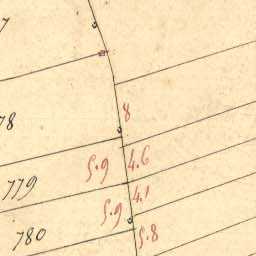 7
8
78
5.9 4.6
779
5.9 4.1
780
5.8